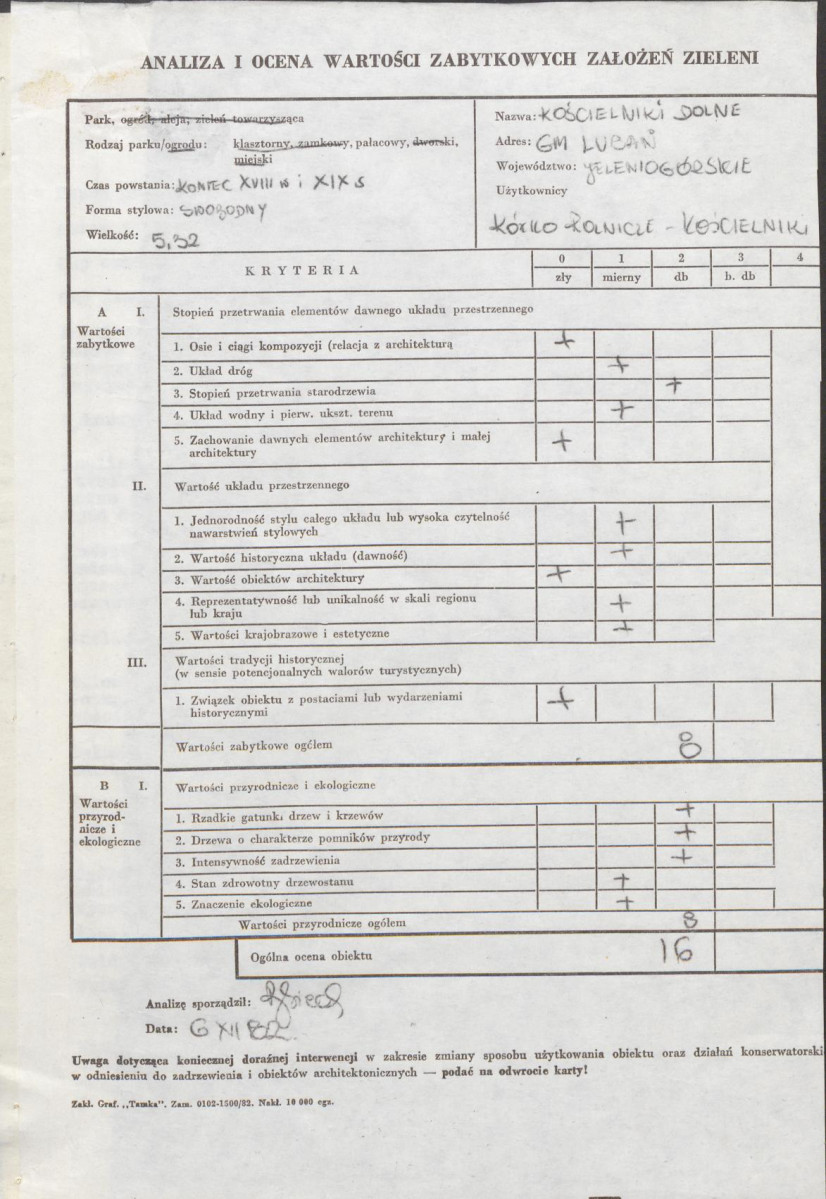 ANALIZA I OCENA WARTOŚCI ZABYTKOWYCH ZAŁOŻEŃ ZIELENI
Park, ogród, aleja, zieleń towarzysząca
Rodzaj parku/ogrodu: klasztorny, zamkowy, pałacowy, dworski,
miejski
Czas powstania: KONIEC XVIII w i XIX s
Forma stylowa: SWOBODNY
Wielkość: 5,32
Nazwa: KOŚCIELNIKI DOLNE
Adres: GM LUBAŃ
Województwo: JELENIOGÓRSKIE
Użytkownicy
KÓŁKO ROLNICZE - KOŚCIELNIKI
KRYTERIA 0 1 2 3 4
zły mierny db b. db
A I. Stopień przetrwania elementów dawnego układu przestrzennego
Wartości
zabytkowe
1. Osie i ciągi kompozycji (relacja z architekturą +
2. Układ dróg +
3. Stopień przetrwania starodrzewia +
4. Układ wodny i pierw. ukszt. terenu +
5. Zachowanie dawnych elementów architektury i małej +
architektury
II. Wartość układu przestrzennego
1. Jednorodność stylu całego układu lub wysoka czytelność +
nawarstwień stylowych
2. Wartość historyczna układu (dawność) +
3. Wartość obiektów architektury +
4. Reprezentatywność lub unikalność w skali regionu +
lub kraju
5. Wartości krajobrazowe i estetyczne +
III. Wartości tradycji historycznej
(w sensie potencjonalnych walorów turystycznych)
1. Związek obiektu z postaciami lub wydarzeniami +
historycznymi
Wartości zabytkowe ogółem 8
B I. Wartości przyrodnicze i ekologiczne
Wartości
przyrod-
nicze i
ekologiczne
1. Rzadkie gatunki drzew i krzewów +
2. Drzewa o charakterze pomników przyrody +
3. Intensywność zadrzewienia +
4. Stan zdrowotny drzewostanu +
5. Znaczenie ekologiczne +
Wartości przyrodnicze ogółem 8
Ogólna ocena obiektu 16
Analizę sporządził:
Data: 6 XII 82.
Uwaga dotycząca koniecznej doraźnej interwencji w zakresie zmiany sposobu użytkowania obiektu oraz działań konserwatorski
w odniesieniu do zadrzewienia i obiektów architektonicznych — podać na odwrocie karty!
Zakł. Graf. „Tamka". Zam. 0102-1500/82. Nakł. 10 000 egz.